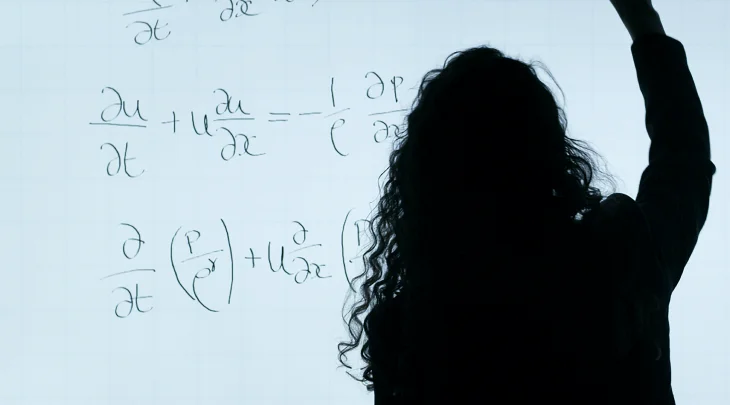 ∂t ∂x
∂u/∂t + u ∂u/∂x = - 1/ρ ∂p/∂x
∂/∂t (p/ρ^γ) + u ∂/∂x (p